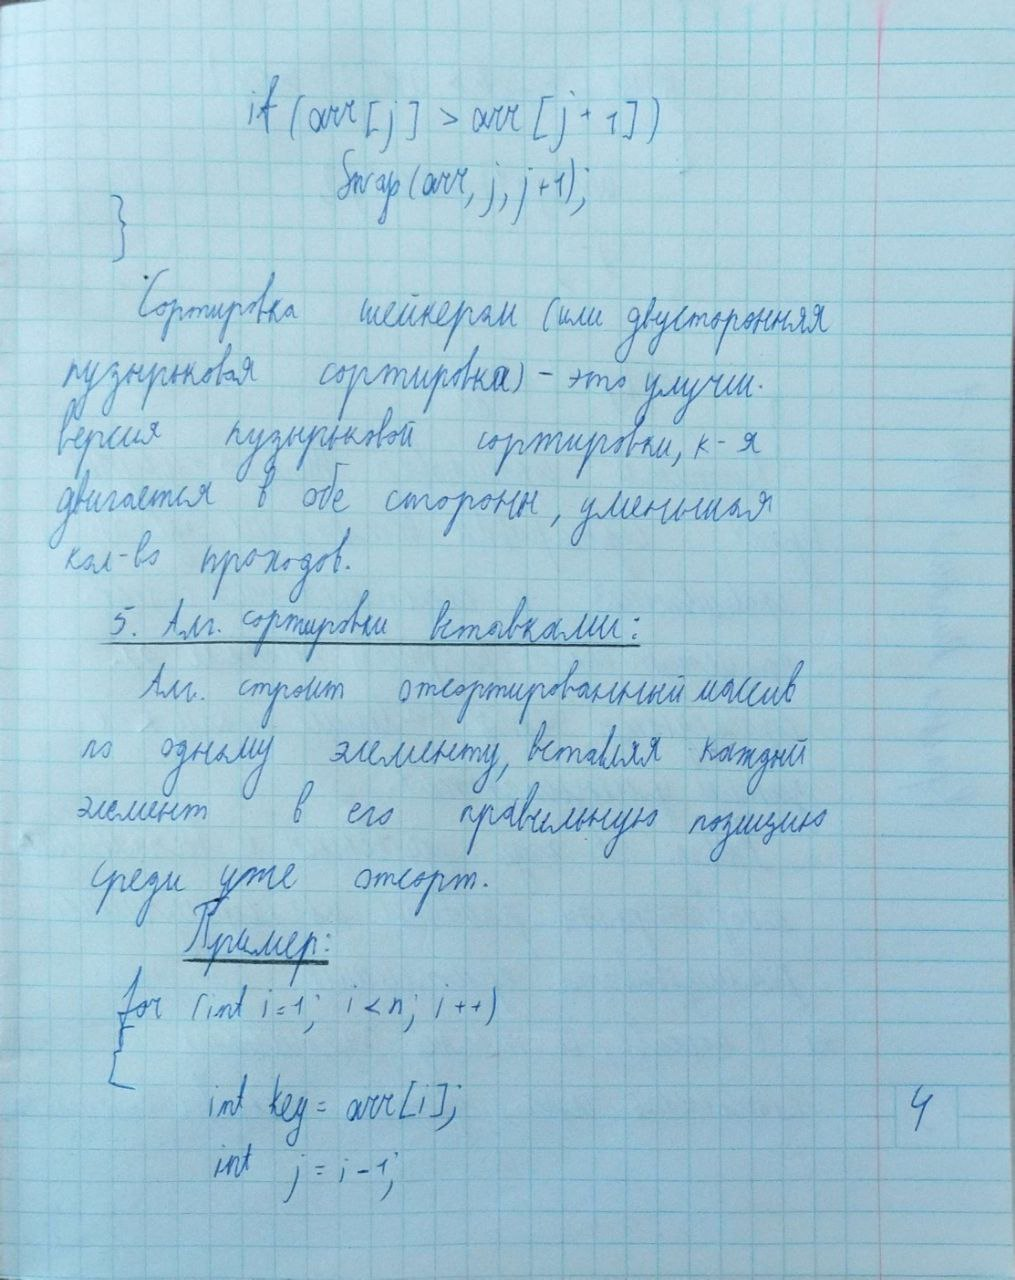 if (arr [j] > arr [j + 1])
Swap(arr, j, j+1);
}
Сортировка шейкером (или двусторонняя
пузырьковая сортировка) - это улучш.
версия пузырьковой сортировки, к-я
двигается в обе стороны, уменьшая
кол-во проходов.
5. Алг. сортировки вставками:
Алг. строит отсортированный массив
по одному элементу, вставляя каждый
элемент в его правильную позицию
среди уже отсорт.
Пример:
for (int i=1; i<n; i++)
{
int key = arr[i];
int j = i-1;
4